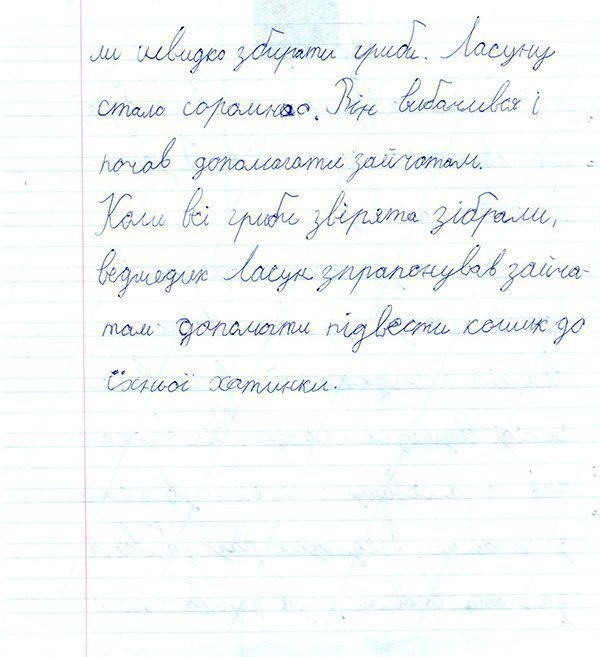 ли швидко збирати гриби. Ласуну
стало соромно. Він вибачився і
почав допомагати зайчатам.
Коли всі гриби звірята зібрали,
ведмедик Ласун зпрапонував зайча-
там допомагти підвести кошик до
їхньої хатинки.